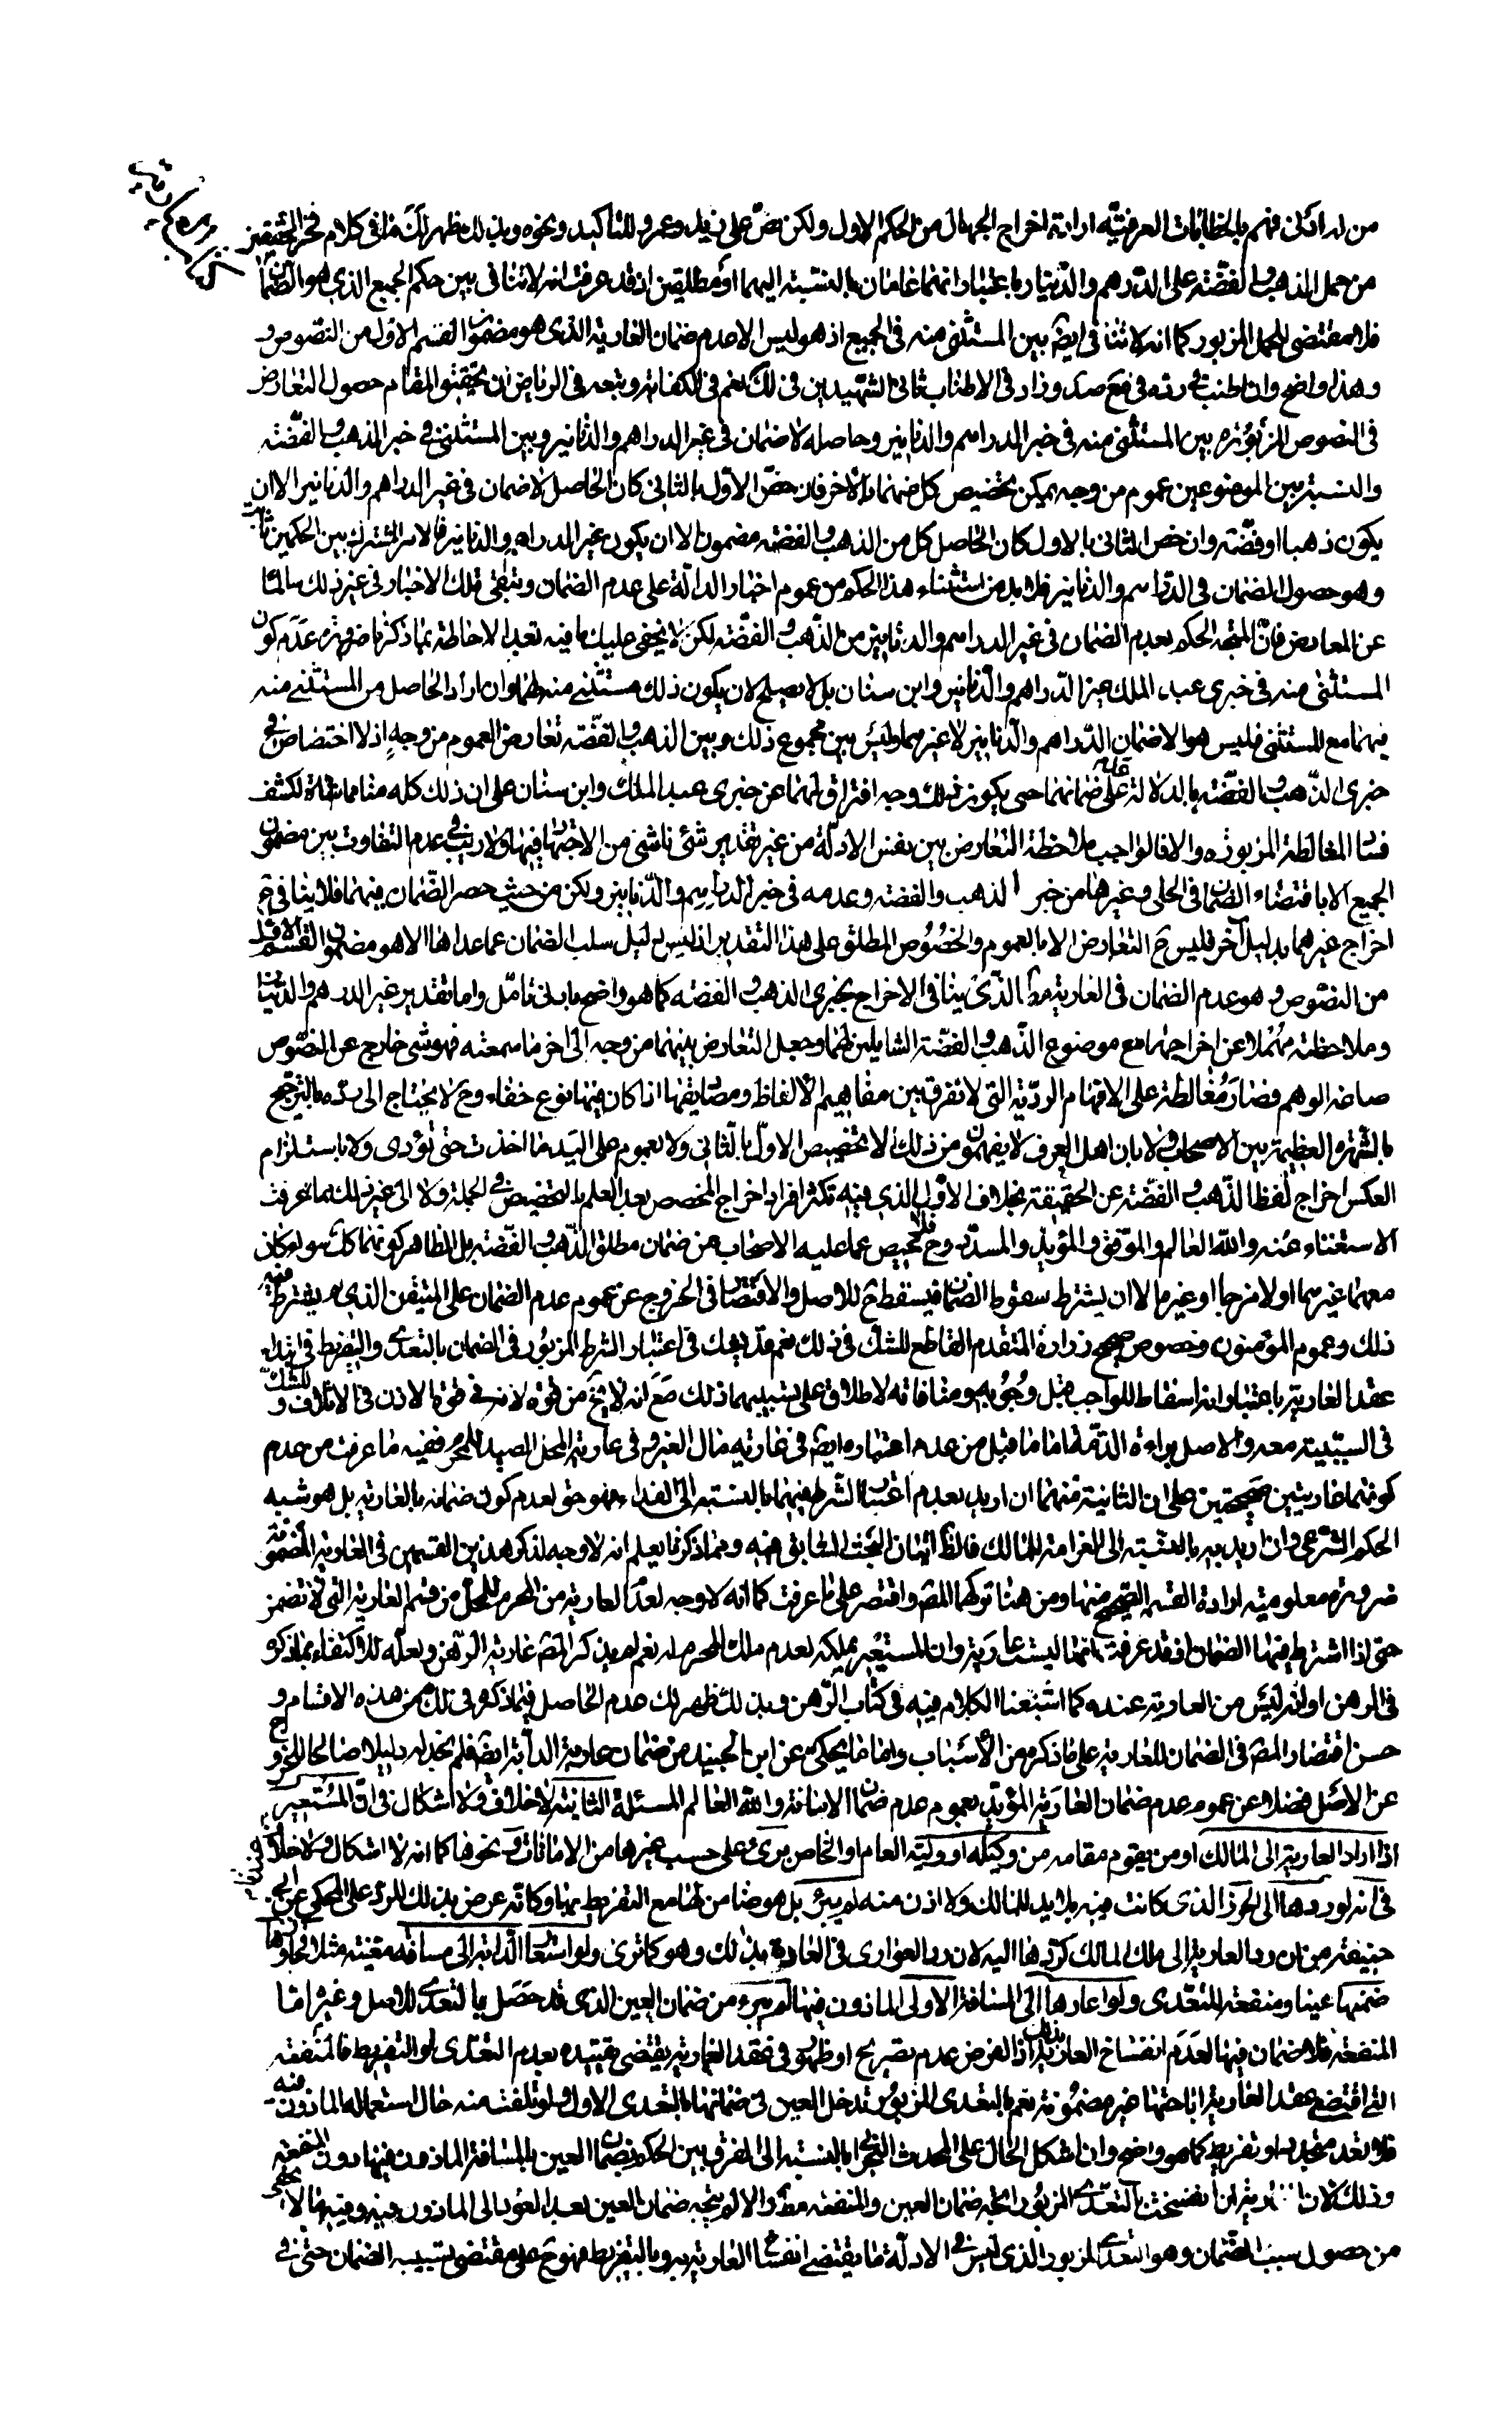 من له ادنى فهم بالخطابات العرفيّة ارادة اخراج الجهال من الحكم الاول ولكن نصّ على زيد وعمرو للتاكيد ونحوه وبذلك يظهر لك ما فى كلام فخر المحققين
من حمل الذهب والفضّة على الدّرهم والدّينار باعتبار انهما عامان بالنسبة اليهما او مطلقين اذ قد عرفت انه لا تنافى بين حكم الجميع الذي هو الضّمان
فلا مقتضى للحمل المزبور كما انه لا تنافى ايضا بين المستثنى منه فى الجميع اذ هو ليس الا عدم ضمان العارية الذى هو مضمون القسم الاول من النصوص
وهذا واضح وان اطنب فى رده فى مع صد وزاد فى الاطناب ثانى الشهيدين فى لك نعم فى الكفاية وتبعه فى الرياض ان تحقيق المقام حصول التعارض
فى النصوص المزبورة بين المستثنى منه فى خبر الدراهم والدنانير وحاصله لا ضمان فى غير الدراهم والدنانير وبين المستثنى فى خبر الذهب والفضّة
والنسبة بين الموضوعين عموم من وجه يمكن تخصيص كل منهما بالاخر فان خصّ الاوّل بالثانى كان الحاصل لا ضمان فى غير الدراهم والدنانير الا ان
يكون ذهبا او فضّة وان خص الثانى بالاول كان الحاصل كل من الذهب والفضة مضمون الا ان يكون غير الدراهم والدنانير فالامر المشترك بين الحكمين ثابت
وهو حصول الضمان فى الدراهم والدنانير فلا بد من استثناء هذا الحكم من عموم اخبار الدالّة على عدم الضمان وتبقى تلك الاخبار فى غير ذلك سالما
عن المعارض فانّ المتجه الحكم بعدم الضمان فى غير الدراهم والدنانير من الذّهب والفضّة لكن لا يخفى عليك ما فيه بعد الاحاطة بما ذكرنا ضرورة عدم كون
المستثنى منه فى خبرى عبد الملك غير الدّراهم والدّنانير وابن سنان بل لا يصلح لان يكون ذلك مستثنى منه لهما وان اراد الحاصل من المستثنى منه
فيهما مع المستثنى فليس هو الا ضمان الدّراهم والدّنانير لا غيرهما وليس بين مجموع ذلك وبين الذهب والفضّة تعارض العموم من وجه اذ لا اختصاص فى
خبرى الذّهب والفضّة بالدلالة على ضمانهما حتى يكون بذلك وجه افتراق لهما عن خبرى عبد الملك وابن سنان على ان ذلك كله منا مماشاة لكشف
فساد المغالطة المزبورة والا فالواجب ملاحظة التعارض بين نفس الادلّة من غير تقدير شئ ناشئ من الاجتهاد فيها ولا ريب فى عدم التفاوت بين مضمون
الجميع الا باقتضاء الضمان فى الحلى وغيرها من خبر الذهب والفضة وعدمه فى خبر الدراهم والدّنانير ولكن من حيث حصر الضّمان فيهما فلا ينافى ح
اخراج غيرهما بدليل آخر فليس ح التعارض الا بالعموم والخصوص المطلق على هذا التقدير اذ ليس دليل سلب الضمان عما عداها الا هو مضمون القسم الاول
من النصوص وهو عدم الضمان فى العارية مط الذّى ينافى الاخراج بخبرى الذهب والفضة كما هو واضح بادنى تامّل واما تقدير غير الدرهم والدينار
وملاحظته مهملا عن اخراجهما مع موضوع الذّهب والفضّة الشاملين لهما وجعل التعارض بينهما من وجه الى اخر ما سمعته فهو شئ خارج عن النصّوص
صاغه الوهم فصار مغالطة على الافهام الرديّة التى لا تفرق بين مفاهيم الالفاظ ومصاديقها اذا كان فيها نوع خفاء وح لا يحتاج الى ردّه بالترجيح
بالشّهرة العظيمة بين الاصحاب ولا بان اهل العرف لا يفهمون من ذلك الا تخصيص الاوّل بالثّانى ولا بعموم على اليد ما اخذت حتّى تؤدى ولا باستلزام
العكس اخراج لفظ الذّهب والفضّة عن الحقيقة بخلاف الاوّل الذى فيه تكثر افراد اخراج المخصص بعد العلم بالتخصيص فى الجملة ولا الى غير ذلك مما عرفت
الاستغناء عنه والله العالم والموّفق والمؤيد والمسدّد وح فلا محيص عما عليه الاصحاب من ضمان مطلق الذّهب والفضّة بل الظاهر كونهما كك سواء كان
معهما غيرهما اولا مزجا او غيره الا ان يشترط سقوط الضمان فيسقط ح للاصل والاقتصار فى الخروج عن عموم عدم الضمان على المتيقن الذى لم يشترط فيه
ذلك وعموم المؤمنون وخصوص صحيح زرارة المتقدم القاطع للشك فى ذلك نعم قد يشك فى اعتبار الشرط المزبور فى الضمان بالتعدى والتفريط فى ابتداء
عقد العارية باعتبار انه اسقاط للواجب قبل وجوبه ومنافاته لاطلاق على سببيتهما ذلك مع انه لا يخ من قوة لانه فى قوة الاذن فى الاتلاف وللشك
فى السببية معه والاصل براءة الذّمة اما ما قيل من عدم اعتباره ايضا فى عارية مال الغير وفى عارية المحل الصيد للمحرم ففيه ما عرفت من عدم
كونهما عاريتين صحيحتين على ان الثانية منهما ان اريد بعدم اعتبار الشّرط فيهما بالنسبة الى الفداء فهو حق لعدم كون ضمانه بالعارية بل هو شبه
الحكم الشرعى وان اريد به بالنسبة الى الغرامة للمالك فالظ اتيان البحث السابق فيه ومما ذكرنا يعلم انه لا وجه لذكر هذين القسمين فى العارية المضمونة
ضرورة معلومية ارادة القسم الصحيح منها ومن هنا تركهما المص واقتصر على ما عرفت كما انه لا وجه لعدّ العارية من المحرم للمحل من قسم العارية التى لا تضمن
حتى اذا اشترط فيها الضمان اذ قد عرفت انها ليست عارية وان المستعير يملكه لعدم ملك المحرم له نعم لم يذكر المص عارية الرّهن ولعلّه للاكتفاء بما ذكره
فى الرهن او لانه ليس من العارية عنده كما اشبعنا الكلام فيه فى كتاب الرّهن وبذلك ظهر لك عدم الحاصل فيما ذكره فى لك من هذه الاقسام و
حسن اقتصار المص فى الضمان للعارية على ما ذكره من الأسباب واما ما يحكى عن ابن الجنيد من ضمان عارية الدابّة ايضا فلم نجد له دليلا صالحا للخروج
عن الاصل فضلا عن عموم عدم ضمان العارية المؤيد بعموم عدم ضمان الامانة والله العالم المسئلة الثانية لا خلاف ولا اشكال فى انّ المستعير
اذا اراد العارية الى المالك او من يقوم مقامه من وكيله او وليّه العام او الخاص برئ على حسب غيرها من الامانات ونحوها كما انه لا اشكال ولا خلاف
فى انه لو ردها الى الحرز الذى كانت فيه بلا يد للمالك ولا اذن منه لم يبرئ بل هو ضامن لها مع التفريط بها وكانّه عرض بذلك للرد على المحكى عن ابى
حنيفة من ان رد العارية الى ملك المالك كردّها اليه لان رد العوارى فى العادة بذلك وهو كما ترى ولو استعار الدّابة الى مسافة معينة مثلا فجاوزها
ضمنها عينا ومنفعة للتعّدى ولو اعادها الى المسافة الاولى الماذون فيها لم يبرء من ضمان العين الذى قد حصل بالتعدى للاصل وغيره اما
المنفعة فلا ضمان فيها لعدم انفساخ العارية بذلك اذ الفرض عدم تصريح او ظهور فى عقد العارية يقتضى تقييده بعدم التعدّى او التفريط فالمنفعة
التى اقتضى عقد العارية اباحتها غير مضمونة نعم بالتعدى المزبور تدخل العين فى ضمانها بالتعدى الاول ولو تلفت منه حال استعماله الماذون فيه
فلا تعد متجدد او تفريط كما هو واضح وان اشكل الحال على المحدث البحرانى بالنسبة الى الفرق بين الحكم بضمان العين بالمسافة الماذون فيها دون المنفعة
وذلك لان العارية ان انفسخت بالتعدّى المزبور اتجه ضمان العين والمنفعة مط والا لم يتجه ضمان العين بعد العود الى الماذون فيه وفيه ما لا يخفى
من حصول سبب الضّمان وهو التعدى المزبور الذى ليس فى الادلّة ما يقتضى انفساخ العارية به وبالتفريط فهو ح على مقتضى تسبيبه الضمان حتى فى